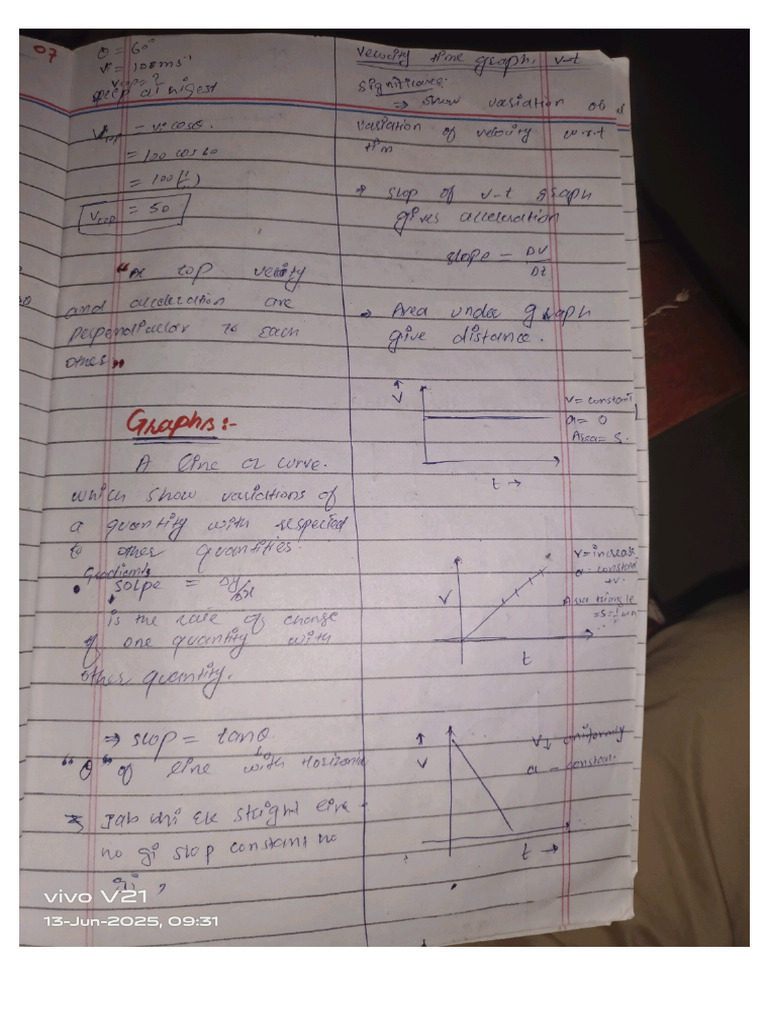 07
θ = 60°
Vi = 100ms⁻¹
Vtop = ?
speep at higest
Vtop = vi cosθ.
= 100 cos 60
= 100(½)
Vtop = 50
and acceleration are
perpendicular to each
other"
Graphs:-
A line or curve.
which show variations of
a quantity with respected
to other quantities.
Gradients
solpe = Δy/Δx
is the rate of change
of one quantity with
other quantity.
⇒ slop = tanθ
"θ" of line with Horizontal
⇒ Jab bhi Ek straight line
ho gi slop constant ho
gi,
Velocity time graph, v-t
Significance:
⇒ show variation of
variation of velocity w.r.t
tim
⇒ slop of v-t graph
gives acceleration
slope = ΔV/Δt
⇒ Area under graph
give distance.
V
v = constant
a = 0
Area = S.
t →
v = increase
a = constant
+v.
Area triangle
V
t
V↓ uniformly
V
a = constant
t →
vivo V21
13-Jun-2025, 09:31